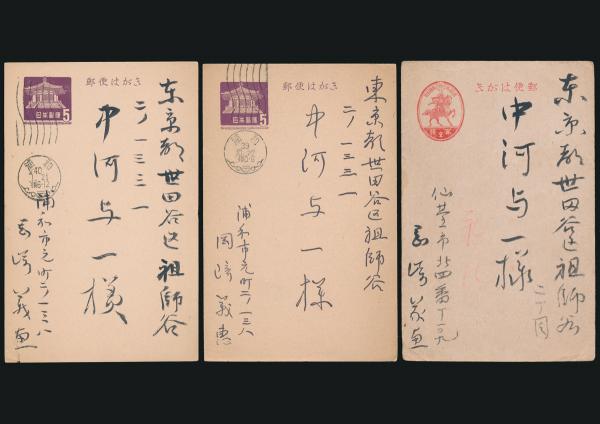 郵便はがき
日本郵便
5
浦和
40
東京都世田谷区祖師谷
二ノ一三三一
中河与一様
浦和市元町二ノ一三八
岡崎義恵
郵便はがき
日本郵便
5
39
東京都世田谷区祖師谷
二ノ一三三一
中河与一様
浦和市元町二ノ一三八
岡崎義恵
郵便はがき
東京都世田谷区祖師谷
二丁目
中河与一様
仙台市北四番丁
岡崎義恵